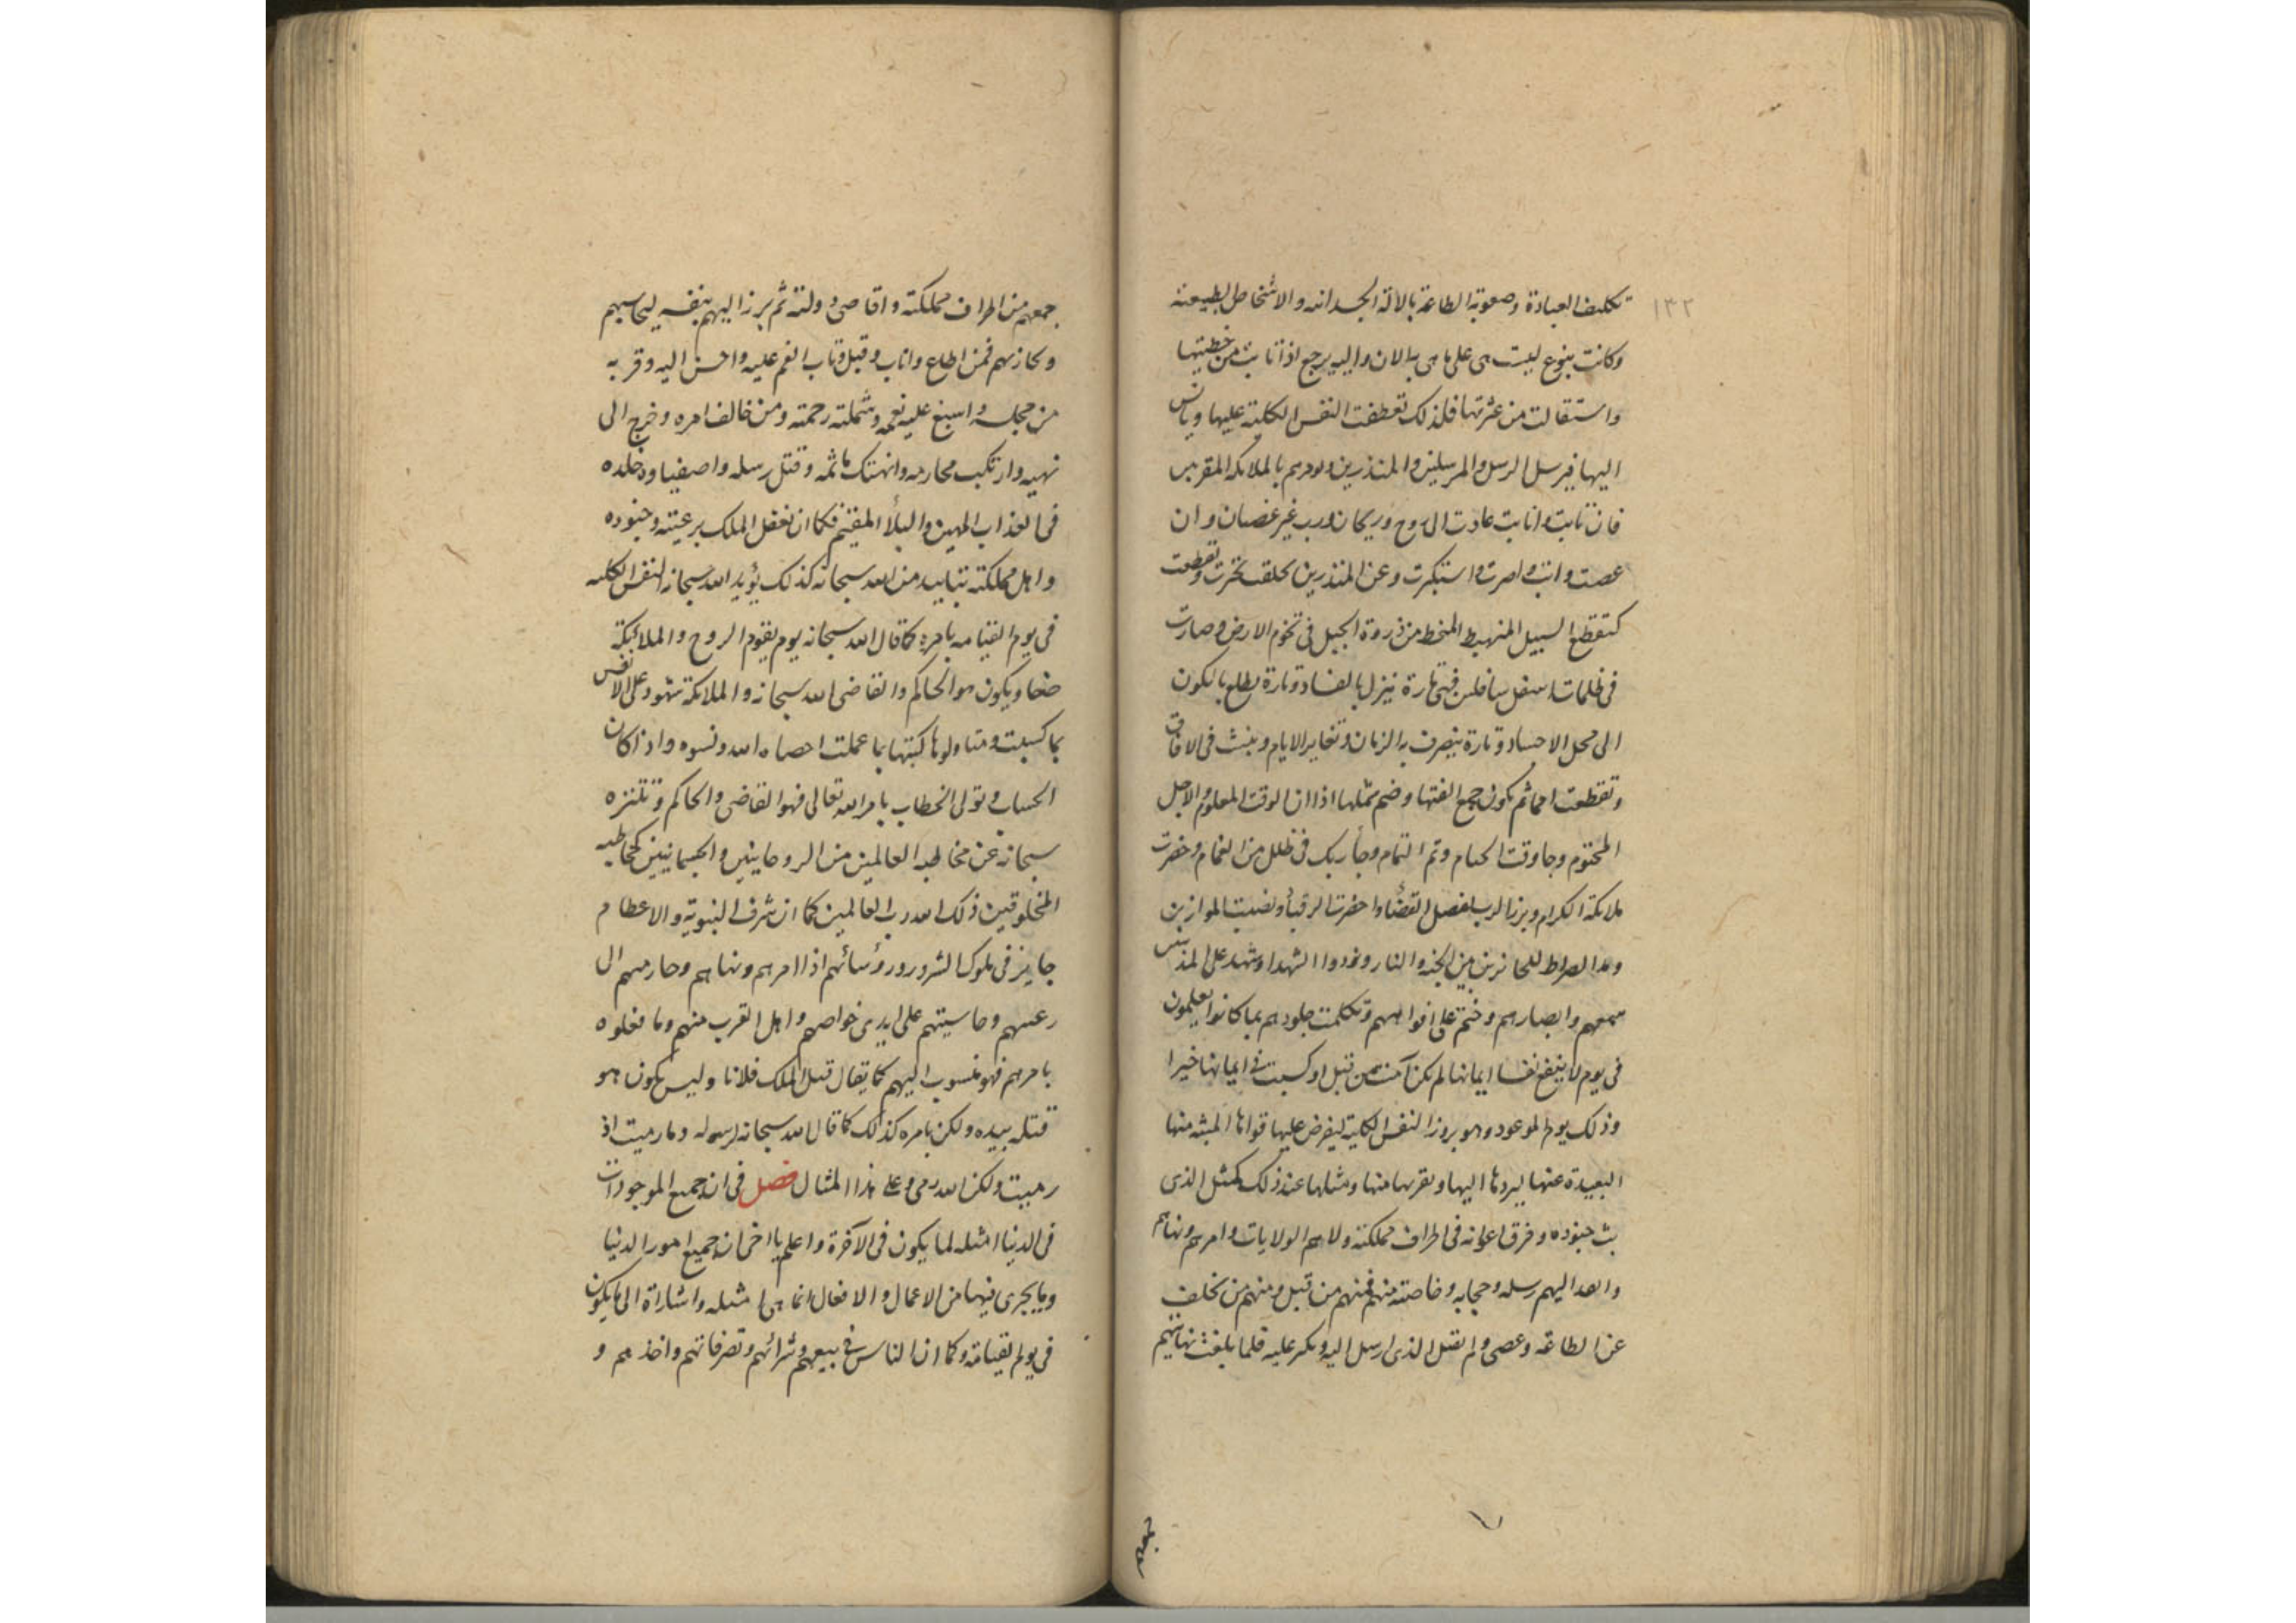 ١٣٢
تكليف العبادة وصعوبة الطاعة بالالة الجسدانية والاشخاص الطبيعية
وكانت بنوع ليست هى على ما هى به الان واليه يرجع اذا تابت من خطيتها
واستقالت من عثرتها فلذلك تعطفت النفس الكلية عليها
اليها فيرسل الرسل والمرسلين والمنذرين ويؤيدهم بالملائكة المقربين
فان تابت وانابت عادت الى روح وريحان ورب غير غضبان وان
عصت وابت واصرت واستكبرت وعن المنذرين تخلفت وتقطعت
كتقطع السيل المنهبط المنحط من ذروة الجبل فى تخوم الارض وصارت
فى ظلمات اسفل سافلين فهى تارة ينزل بالفساد وتارة يطلع بالكون
الى محل الاجساد وتارة يتصرف به الزمان وتغاير الايام وينبث فى الافاق
وتقطعت امما ثم يكون جمع الفتها وضم شملها اذا ان الوقت المعلوم والاجل
المحتوم وجا وقت الحمام وتم التمام وجأ ربك فى ظلل من الغمام وحضرت
ملائكته الكرام وبرز الرب لفصل القضاء واحضرت الرقبأ ونصبت الموازين
ومد الصراط للجائزين بين الجنة والنار ونودوا الشهدا وشهد على المذنبين
سمعهم وابصارهم وختم على افواههم وتكلمت جلودهم بما كانوا يعلمون
فى يوم لا ينفع نفسا ايمانها لم تكن آمنت من قبل او كسبت فى ايمانها خيرا
وذلك يوم الموعود وهو بروز النفس الكلية ليفرض عليها قواها المنبثه منها
البعيدة عنها ليردها اليها ويقربها منها ومثلها عند ذلك كمثل الذى
بث جنوده وفرق اعوانه فى اطراف مملكته ولاهم الولايات وامرهم ونهاهم
وانفد اليهم رسله وحجابه وخاصته منهم فمنهم من قبل ومنهم من تخلف
عن الطاعة وعصى ولم يقبل الذى ارسل اليه وتكبر عليه فلما بلغت نهايتهم
جمعهم
جمعهم من اطراف مملكته واقاصى دولته ثم برز اليهم بنفسه ليحاسبهم
ويجازيهم فمن اطاع واناب وقبل وتاب انعم عليه واحسن اليه وقربه
من مجلسه واسبغ عليه نعمه وشملته رحمته ومن خالف امره وخرج الى
نهيه وارتكب محارمه وانهتك ماثمه وقتل رسله واصفياوه خلده
فى العذاب المهين والبلأ المقيم فكما ان يفعل الملك برعيته وجنوده
واهل مملكته بتاييد من الله سبحانه كذلك يؤيد الله سبحانه النفس الكلية
فى يوم القيامه بامره كما قال الله سبحانه يوم يقوم الروح والملائكة
صفا ويكون هو الحاكم والقاضى الله سبحانه والملائكة شهود على الانفس
بما كسبت ومتناولوها كتبتها بما عملت احصاه الله ونسوه واذا كان
الحساب وتولى الخطاب بامر الله تعالى فهو القاضى والحاكم وتنزه
سبحانه عن مخاطبه العالمين من الروحانيين والجسمانيين كمخاطبه
المخلوقين ذلك الله رب العالمين كما ان شرف النبوة والاعظام
جايز فى ملوك الشرور ورؤسائهم اذا امرهم ونهاهم وحارمهم ال
رعيتهم وحاشيتهم على ايدى خواصهم واهل القرب منهم وما فعلوه
بامرهم فهو منسوب اليهم كما يقال قتل الملك فلانا وليس يكون هو
قتله بيده ولكن بامره كذلك كما قال الله سبحانه لرسوله وما رميت اذ
رميت ولكن الله رمى وعلى هذا المثال فصل فى ان جميع الموجودات
فى الدنيا امثله لما يكون فى الآخرة واعلم يا اخى ان جميع امور الدنيا
وما يجرى فيها من الاعمال والافعال انما هى امثله واشارة الى ما يكون
فى يوم القيامة وكما ان الناس فى بيعهم وشرائهم وتصرفاتهم واخذهم و